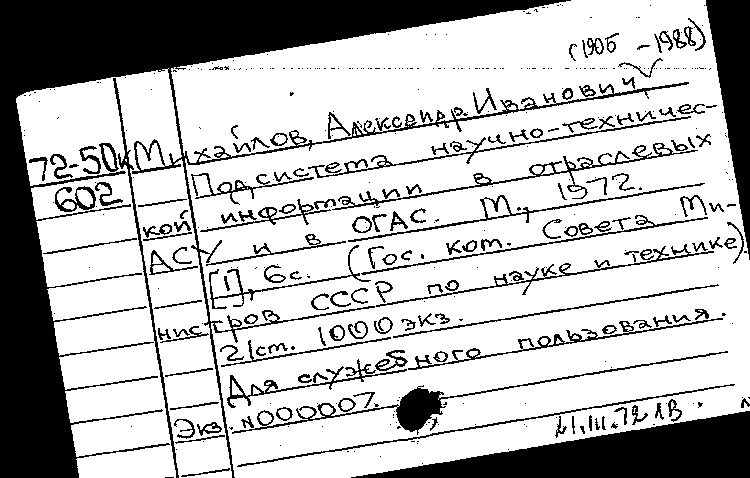 (1905 - 1988)
72-50к Михайлов, Александр Иванович.
602 Подсистема научно-техничес-
кой информации в отраслевых
АСУ и в ОГАС. М., 1972.
[1], 6с. (Гос. ком. Совета Ми-
нистров СССР по науке и технике)
21см. 1000 экз.
Для служебного пользования.
Экз. N000007.
21.III.72 ЛВ.